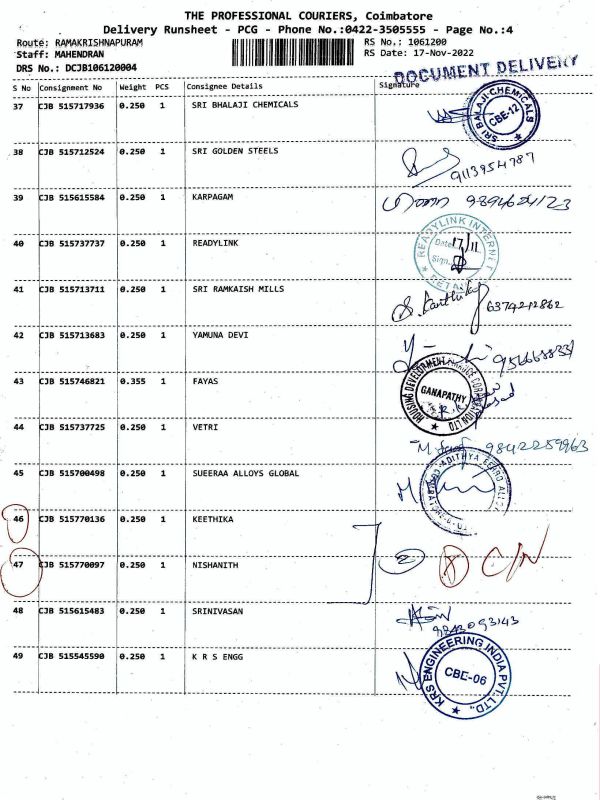 THE PROFESSIONAL COURIERS, Coimbatore
Delivery Runsheet - PCG - Phone No.:0422-3505555 - Page No.:4
Route: RAMAKRISHNAPURAM RS No.: 1061200
Staff: MAHENDRAN RS Date: 17-Nov-2022
DRS No.: DCJB106120004
DOCUMENT DELIVERY
S No Consignment No Weight PCS Consignee Details Signature
37 CJB 515717936 0.250 1 SRI BHALAJI CHEMICALS
SRI BALAJI CHEMICALS
CBE-12
38 CJB 515712524 0.250 1 SRI GOLDEN STEELS
9113954787
39 CJB 515615584 0.250 1 KARPAGAM 9894624123
40 CJB 515737737 0.250 1 READYLINK
READYLINK INTERNET
Date 17/11
Sign.
RETAIL
41 CJB 515713711 0.250 1 SRI RAMKAISH MILLS
S. Karthik 6374212862
42 CJB 515713683 0.250 1 YAMUNA DEVI
43 CJB 515746821 0.355 1 FAYAS
GANAPATHY
44 CJB 515737725 0.250 1 VETRI
9842259963
45 CJB 515700498 0.250 1 SUEERAA ALLOYS GLOBAL
46 CJB 515770136 0.250 1 KEETHIKA
47 CJB 515770097 0.250 1 NISHANITH
2 C/N
48 CJB 515615483 0.250 1 SRINIVASAN
9843093143
49 CJB 515545590 0.250 1 K R S ENGG
KRS ENGINEERING INDIA PVT. LTD.,
CBE-06